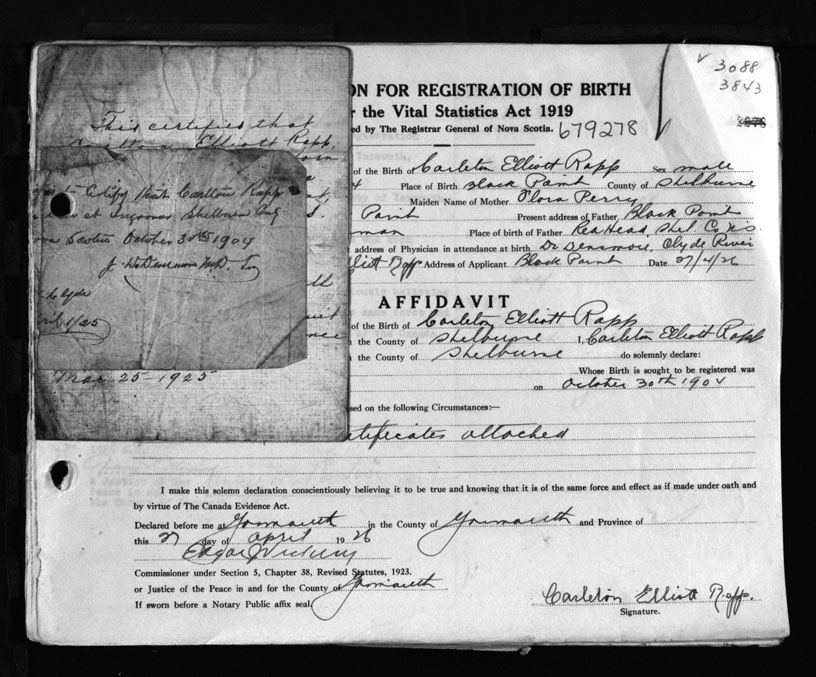 3088
3843
ON FOR REGISTRATION OF BIRTH
r the Vital Statistics Act 1919
ed by The Registrar General of Nova Scotia. 679278
of the Birth of Carleton Elliott Rapp Sex male
4 Place of Birth Black Point County of Shelburne
Maiden Name of Mother Flora Perry
Point Present address of Father Black Point
man Place of birth of Father Red Head, Shel Co N.S
address of Physician in attendance at birth Dr Densmore, Clyde River
lliott Rapp Address of Applicant Black Point Date 27/4/26
This certifies that
Elliott Rapp,
orn
to Certify that Carlton Rapp
at Ingomar Shelburn
ova Scotia October 30th 1904
M.D.
Clyde
pril 1/25
Mar 25-1925
AFFIDAVIT
of the Birth of Carleton Elliott Rapp
the County of Shelburne I, Carleton Elliott Rapp
the County of Shelburne do solemnly declare:
Whose Birth is sought to be registered was
on October 30th 1904
sed on the following Circumstances:—
tificates attached
I make this solemn declaration conscientiously believing it to be true and knowing that it is of the same force and effect as if made under oath and
by virtue of The Canada Evidence Act.
Declared before me at Yarmouth in the County of Yarmouth and Province of
this 27 day of April 1926
Edgar
Commissioner under Section 5, Chapter 38, Revised Statutes, 1923.
or Justice of the Peace in and for the County of Yarmouth
If sworn before a Notary Public affix seal
Carleton Elliott Rapp.
Signature.